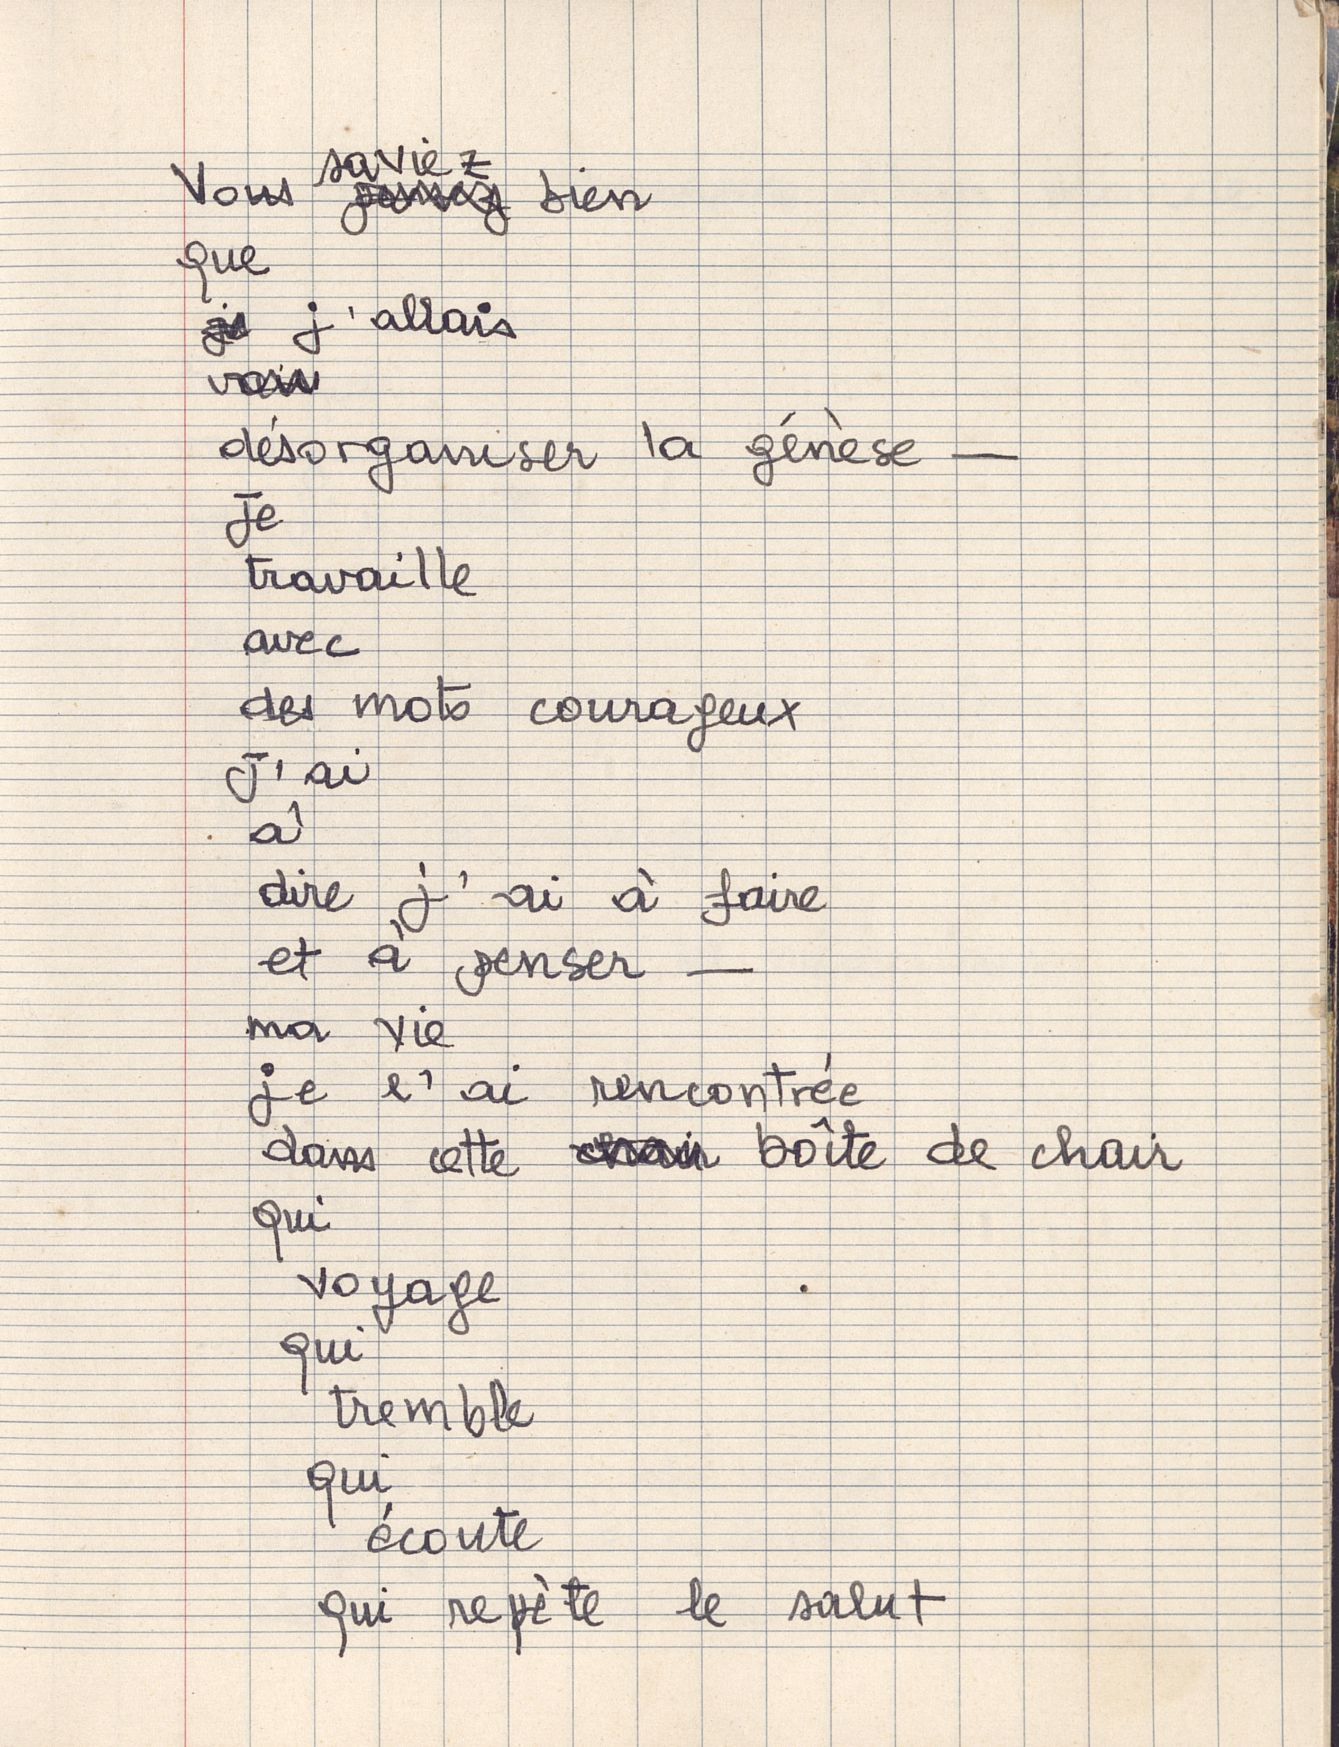 Vous saviez bien
que
j'allais
désorganiser la génèse —
Je
travaille
avec
des mots courageux
J'ai
à
dire j'ai à faire
et à penser —
ma vie
je l'ai rencontrée
dans cette boîte de chair
qui
voyage
qui
tremble
qui
écoute
qui repète le salut